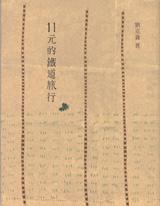 11元的鐵道旅行
劉克襄 著